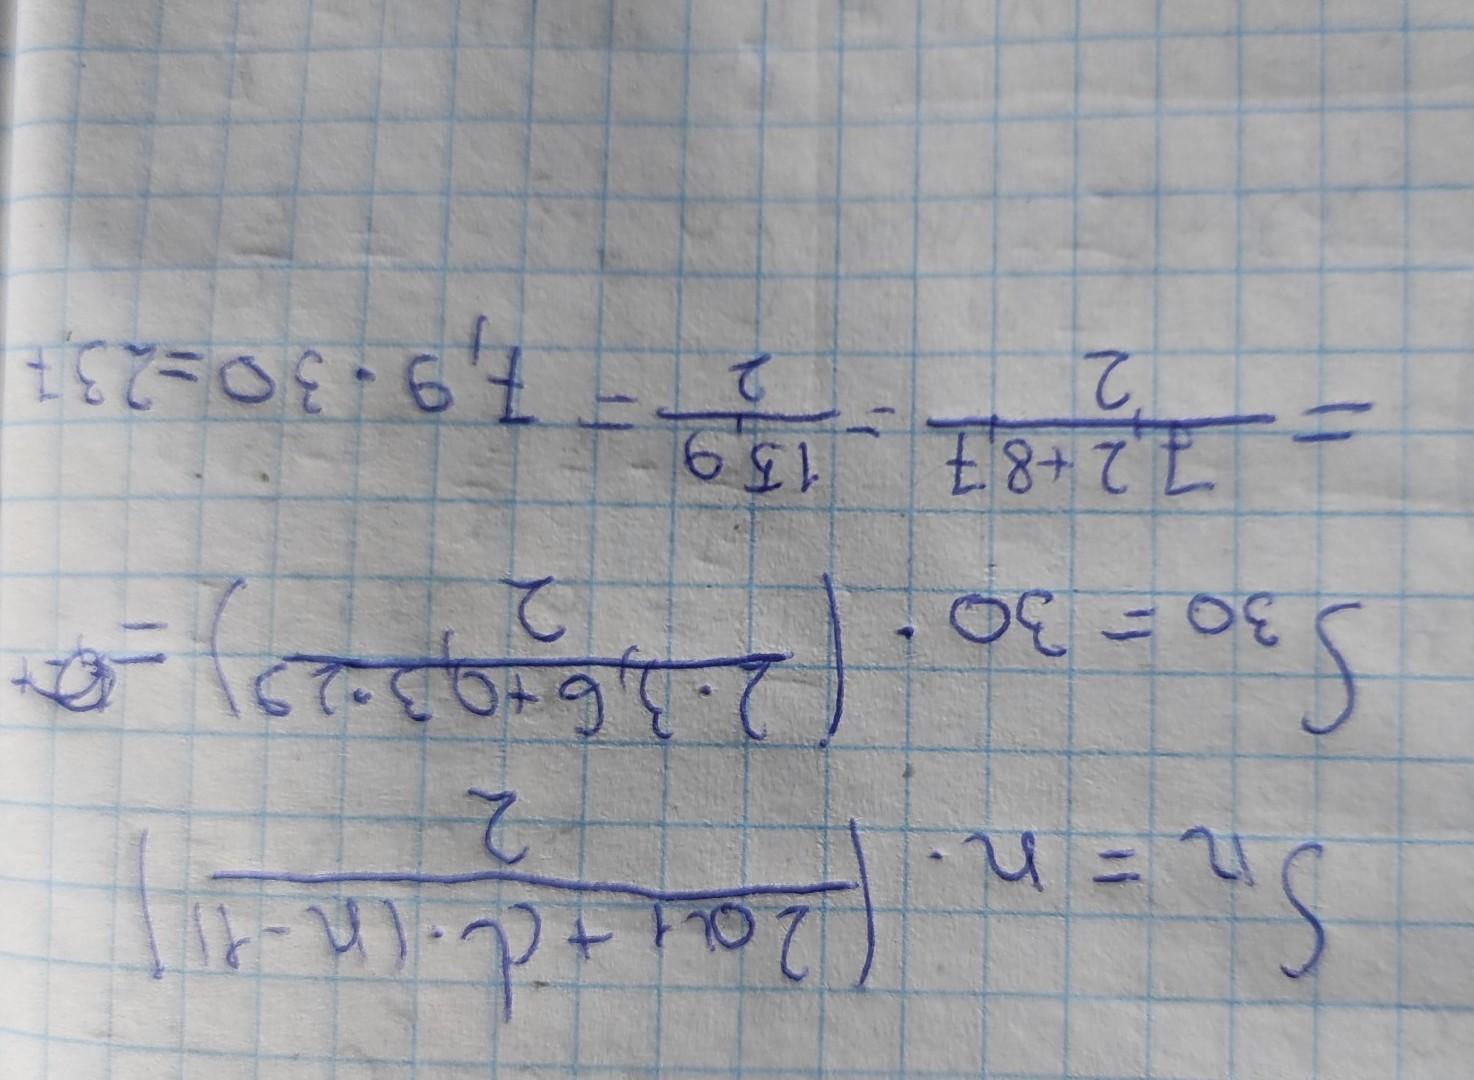 Sn = n · (2a1 + d · (n - 1) / 2)
S30 = 30 · (2 · 3,6 + 0,3 · 29 / 2) =
= 7,2 + 8,7 / 2 = 15,9 / 2 = 7,9 · 30 = 237